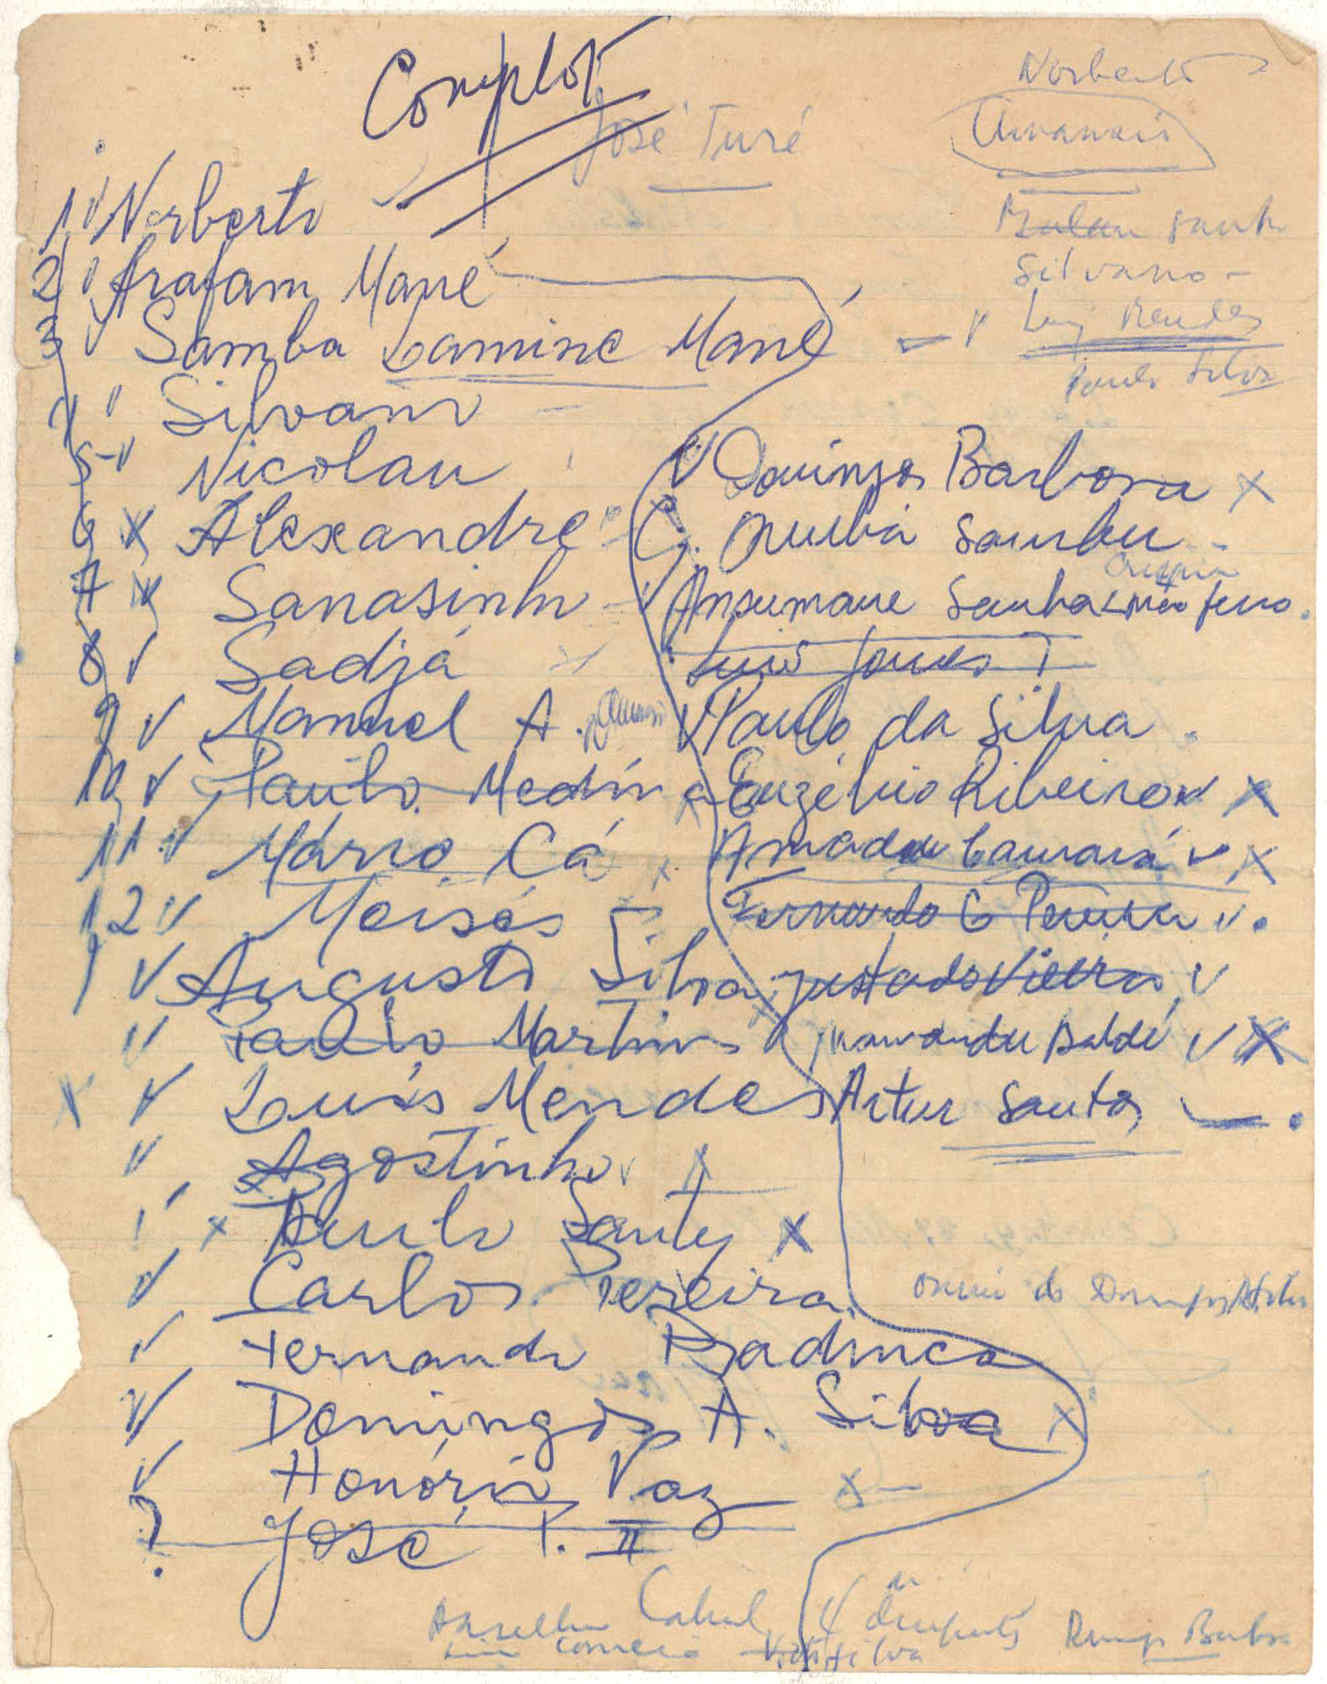 Complot
José Turé
Norberto
Ananias
Malan Sanh
Silvano -
Luiz Mendes
Paulo Silva
1 Norberto
2 Arafam Mané
3 Samba Lamine Mané
4 Silvano
5 Nicolau
6 Alexandre
7 Sanasinho
8 Sadjá
9 Manuel A.
10 Paulo Medina
11 Mário Cá
12 Moisés
Augusto Silva
Paulo Martins
Luís Mendes
Agostinho
Paulo Santy
Carlos Pereira
Fernando Badinca
Domingos A. Silva
Honório Vaz
? José T. II
Domingos Barbosa X
C. Quebá Sambu
Ansumane Sanha
Luis Gomes
Paulo da Silva
Euzébio Ribeiro X
Amadu Camará X
Fernando G Pereira
Justado Vieira
Mamandu Baldé X
Artur Santos
Cabral
Luis Correia
Silva